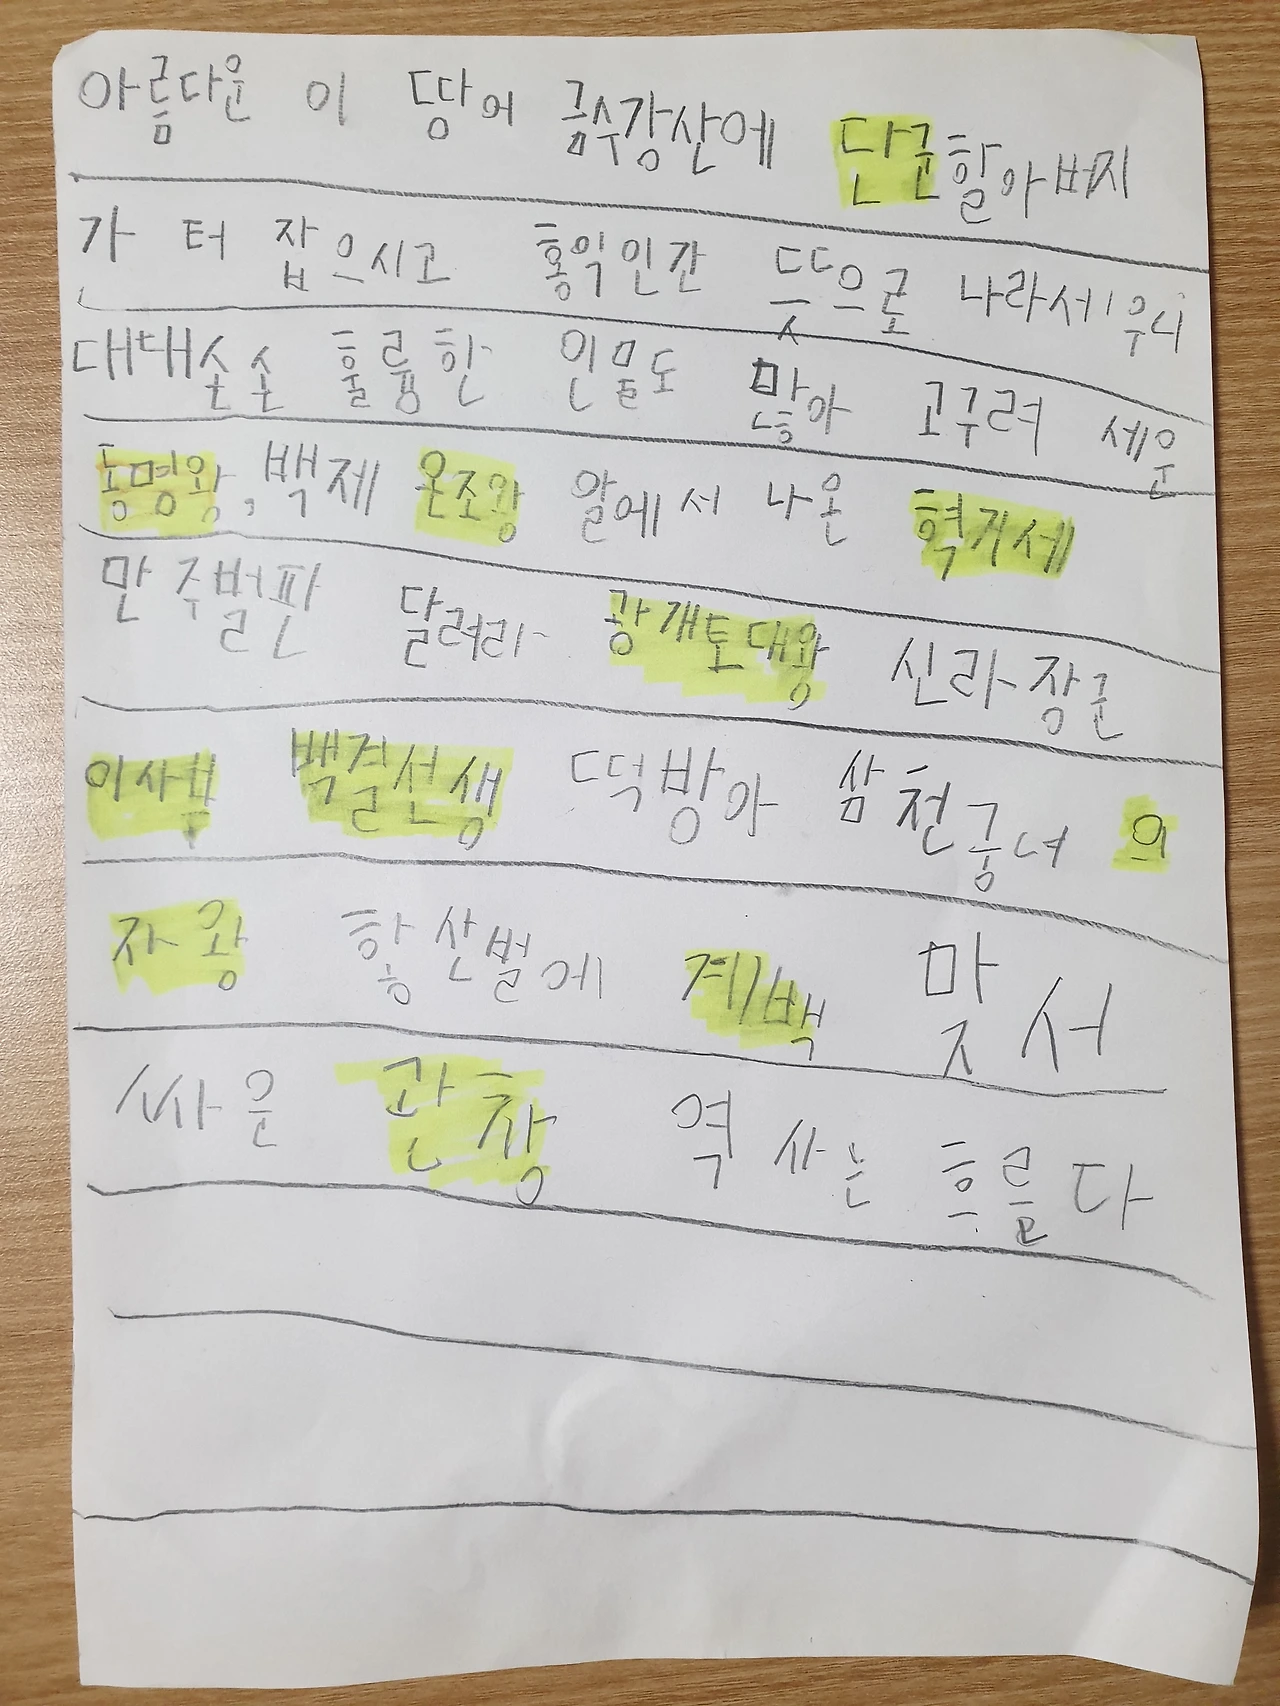 아름다운 이 땅에 금수강산에 단군할아버지
가 터 잡으시고 홍익인간 뜻으로 나라세우니
대대손손 훌륭한 인물도 많아 고구려 세운
동명왕, 백제 온조왕 알에서 나온 혁거세
만주벌판 달려라 광개토대왕 신라장군
이사부 백결선생 떡방아 삼천궁녀 의
자왕 황산벌에 계백 맞서
싸운 관창 역사는 흐른다